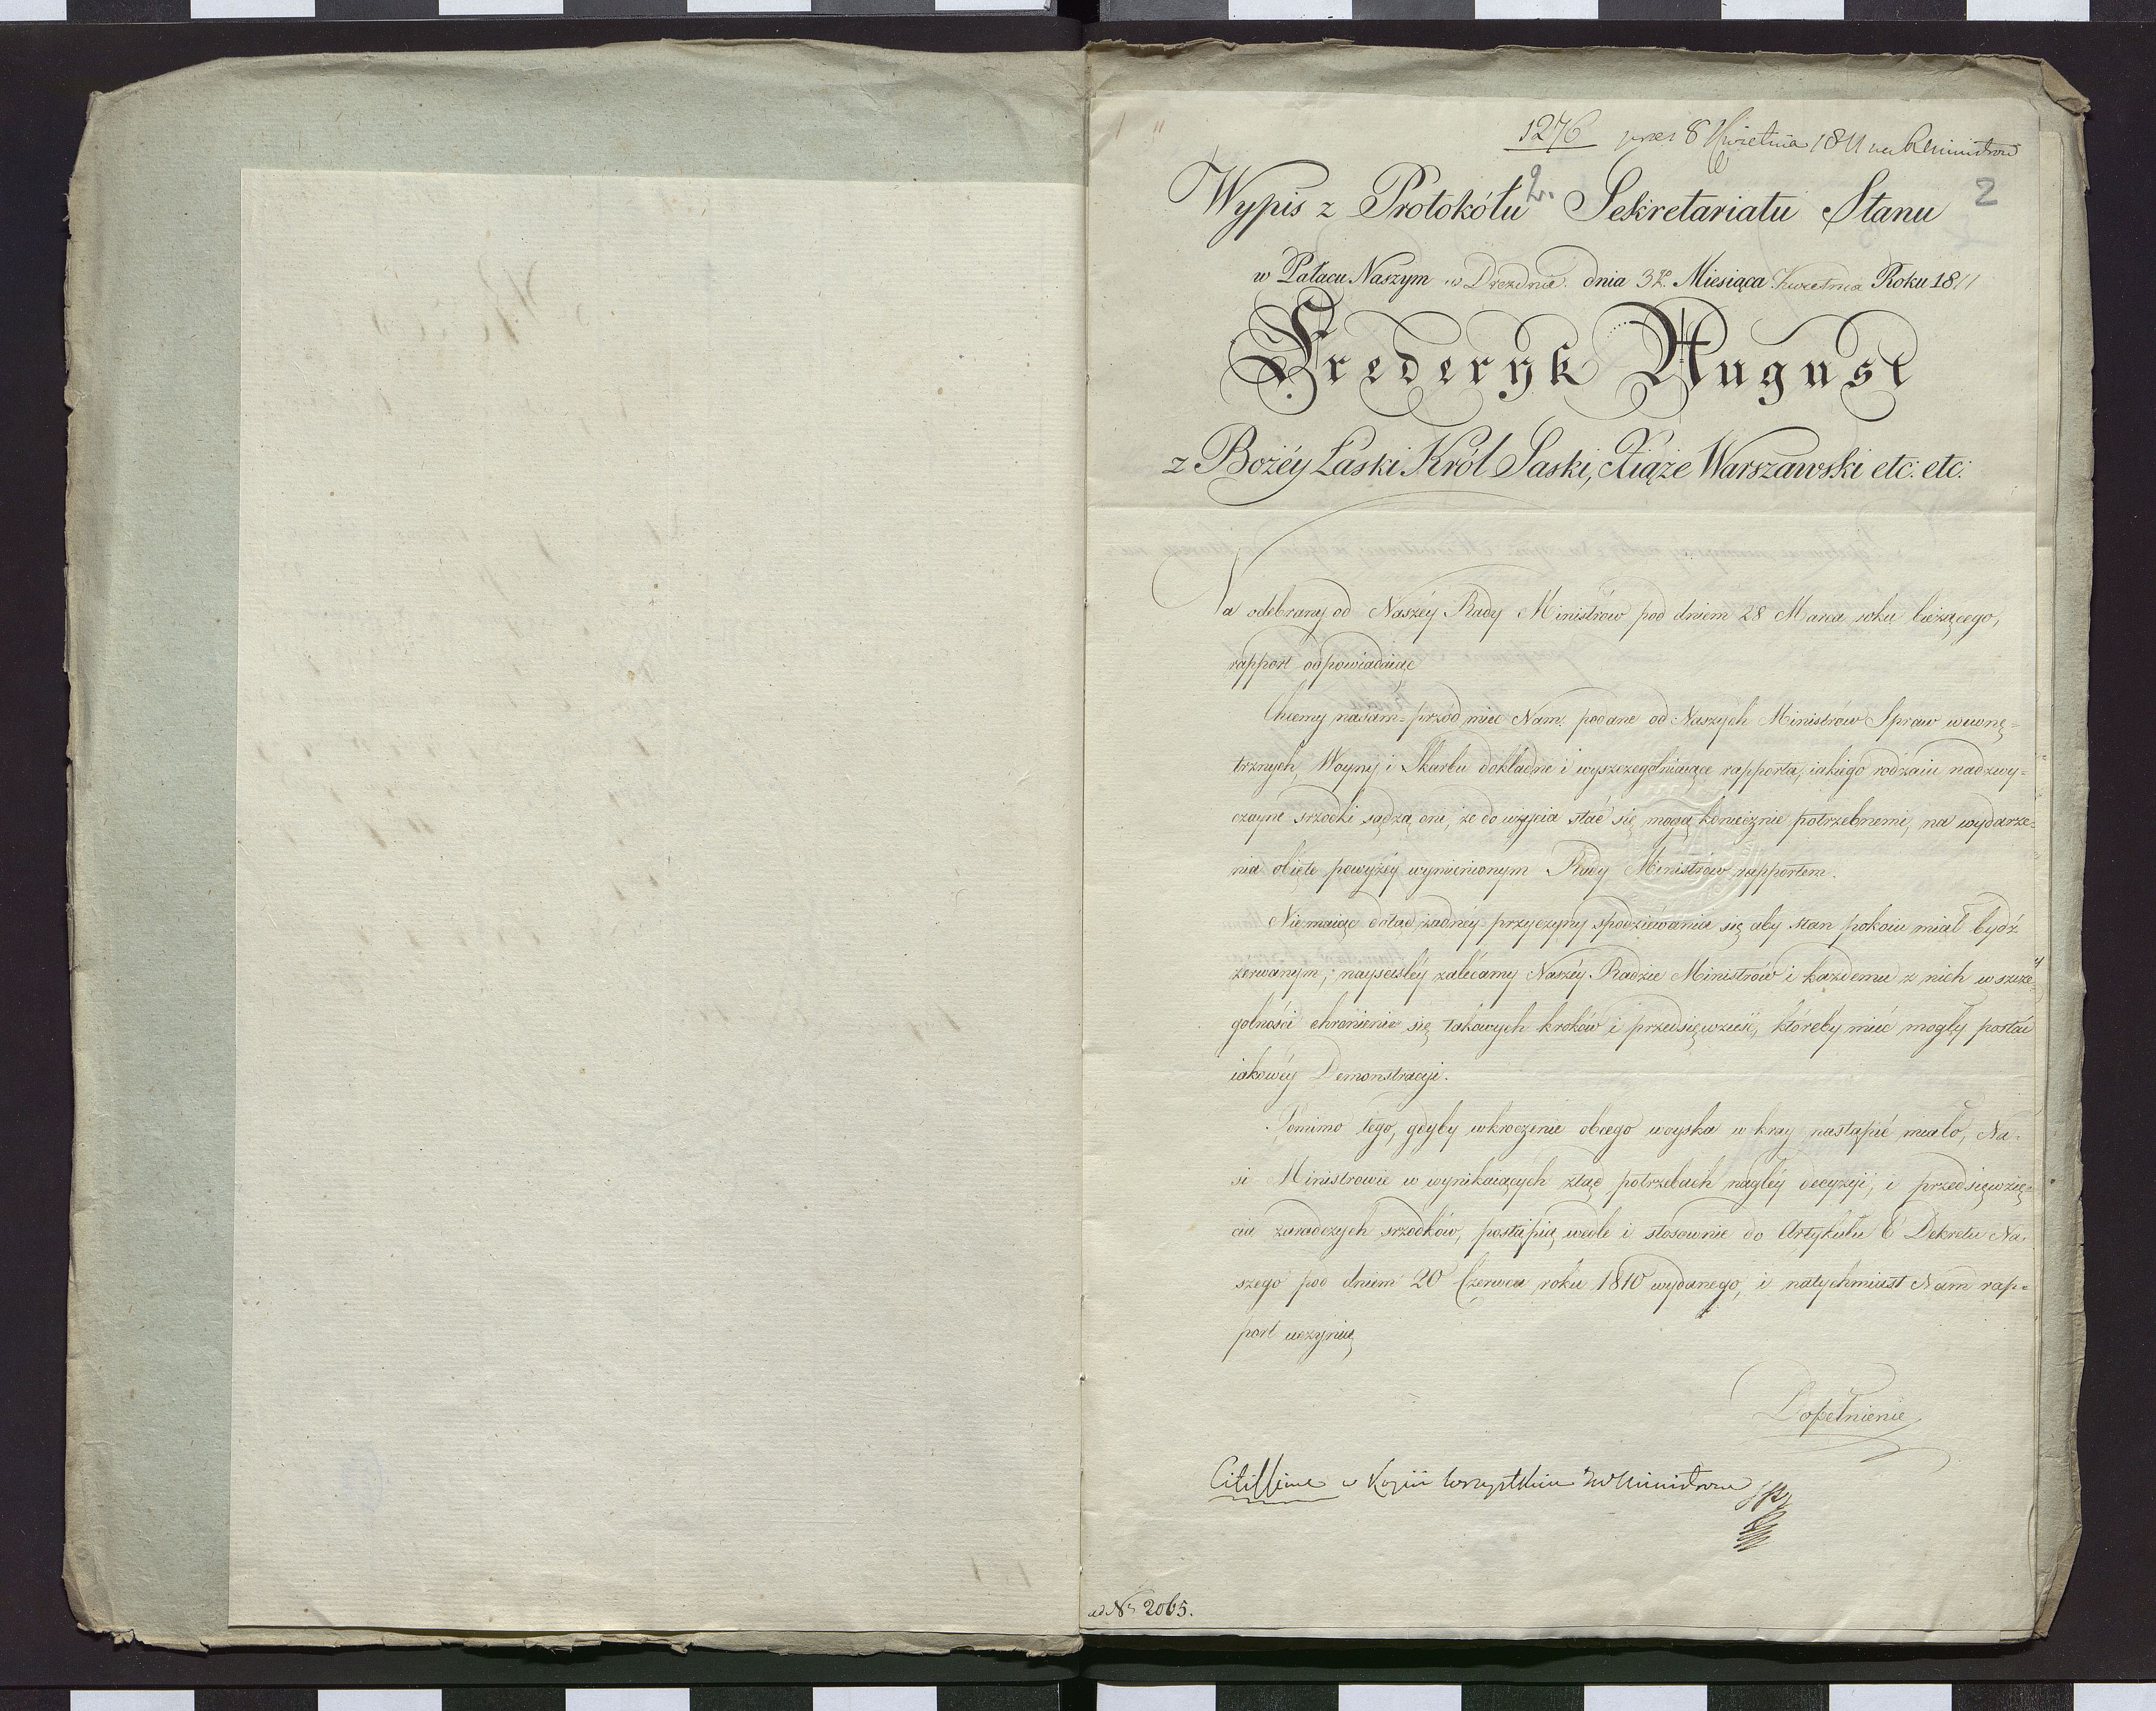 1276 prez 8 Kwietnia 1811 na R Ministrow
Wypis z Protokółu Sekretariatu Stanu
2. 2
w Pałacu Naszym w Dreznie dnia 3. Miesiąca Kwietnia Roku 1811
Frederyk August
z Bożéy Łaski Król Saski, Xiąże Warszawski etc: etc:
Na odebrany od Naszéy Rady Ministrów pod dniem 28 Marca roku bieżącego,
rapport odpowiadaiąc
Chcemy nasam=przód mieć Nam podane od Naszych Ministrów Spraw wewnę=
trznych, Woyny i Skarbu dokładne i wyszczególniaiące rapporta, iakiego rodzaiu nadzwy=
czayne srzodki sądzą oni, że do użycia stać się mogą koniecznie potrzebnemi, na wydarze=
nia obięte powyżéy wymienionym Rady Ministrów rapportem.
Niemaiąc dotąd żadnéy przyczyny spodziéwania się aby stan pokoiu miał bydź
zerwanym, nayscisléy zalécamy Naszéy Radzie Ministrów i każdemu z nich w szcze=
golności chronienie się takowych kroków i przedsięwzieść, któreby mieć mogły postać
iakowéy Demonstracyi.
Pomimo tego, gdyby wkroczenie obcego woyska w kray nastąpić miało, Na=
si Ministrowie w wynikaiących ztąd potrzebach nagłéy decyzyi, i przedsięwzię=
cia zaradczych srzodków, postąpią wedle i stosownie do Artykułu 6 Dekretu Na=
szego pod dniem 20 Czerwca roku 1810 wydanego, i natychmiast Nam rap=
port uczynią
Dopełnienie
Citissime w Kopii wszystkim JW Ministrom
ad Nr 2065.